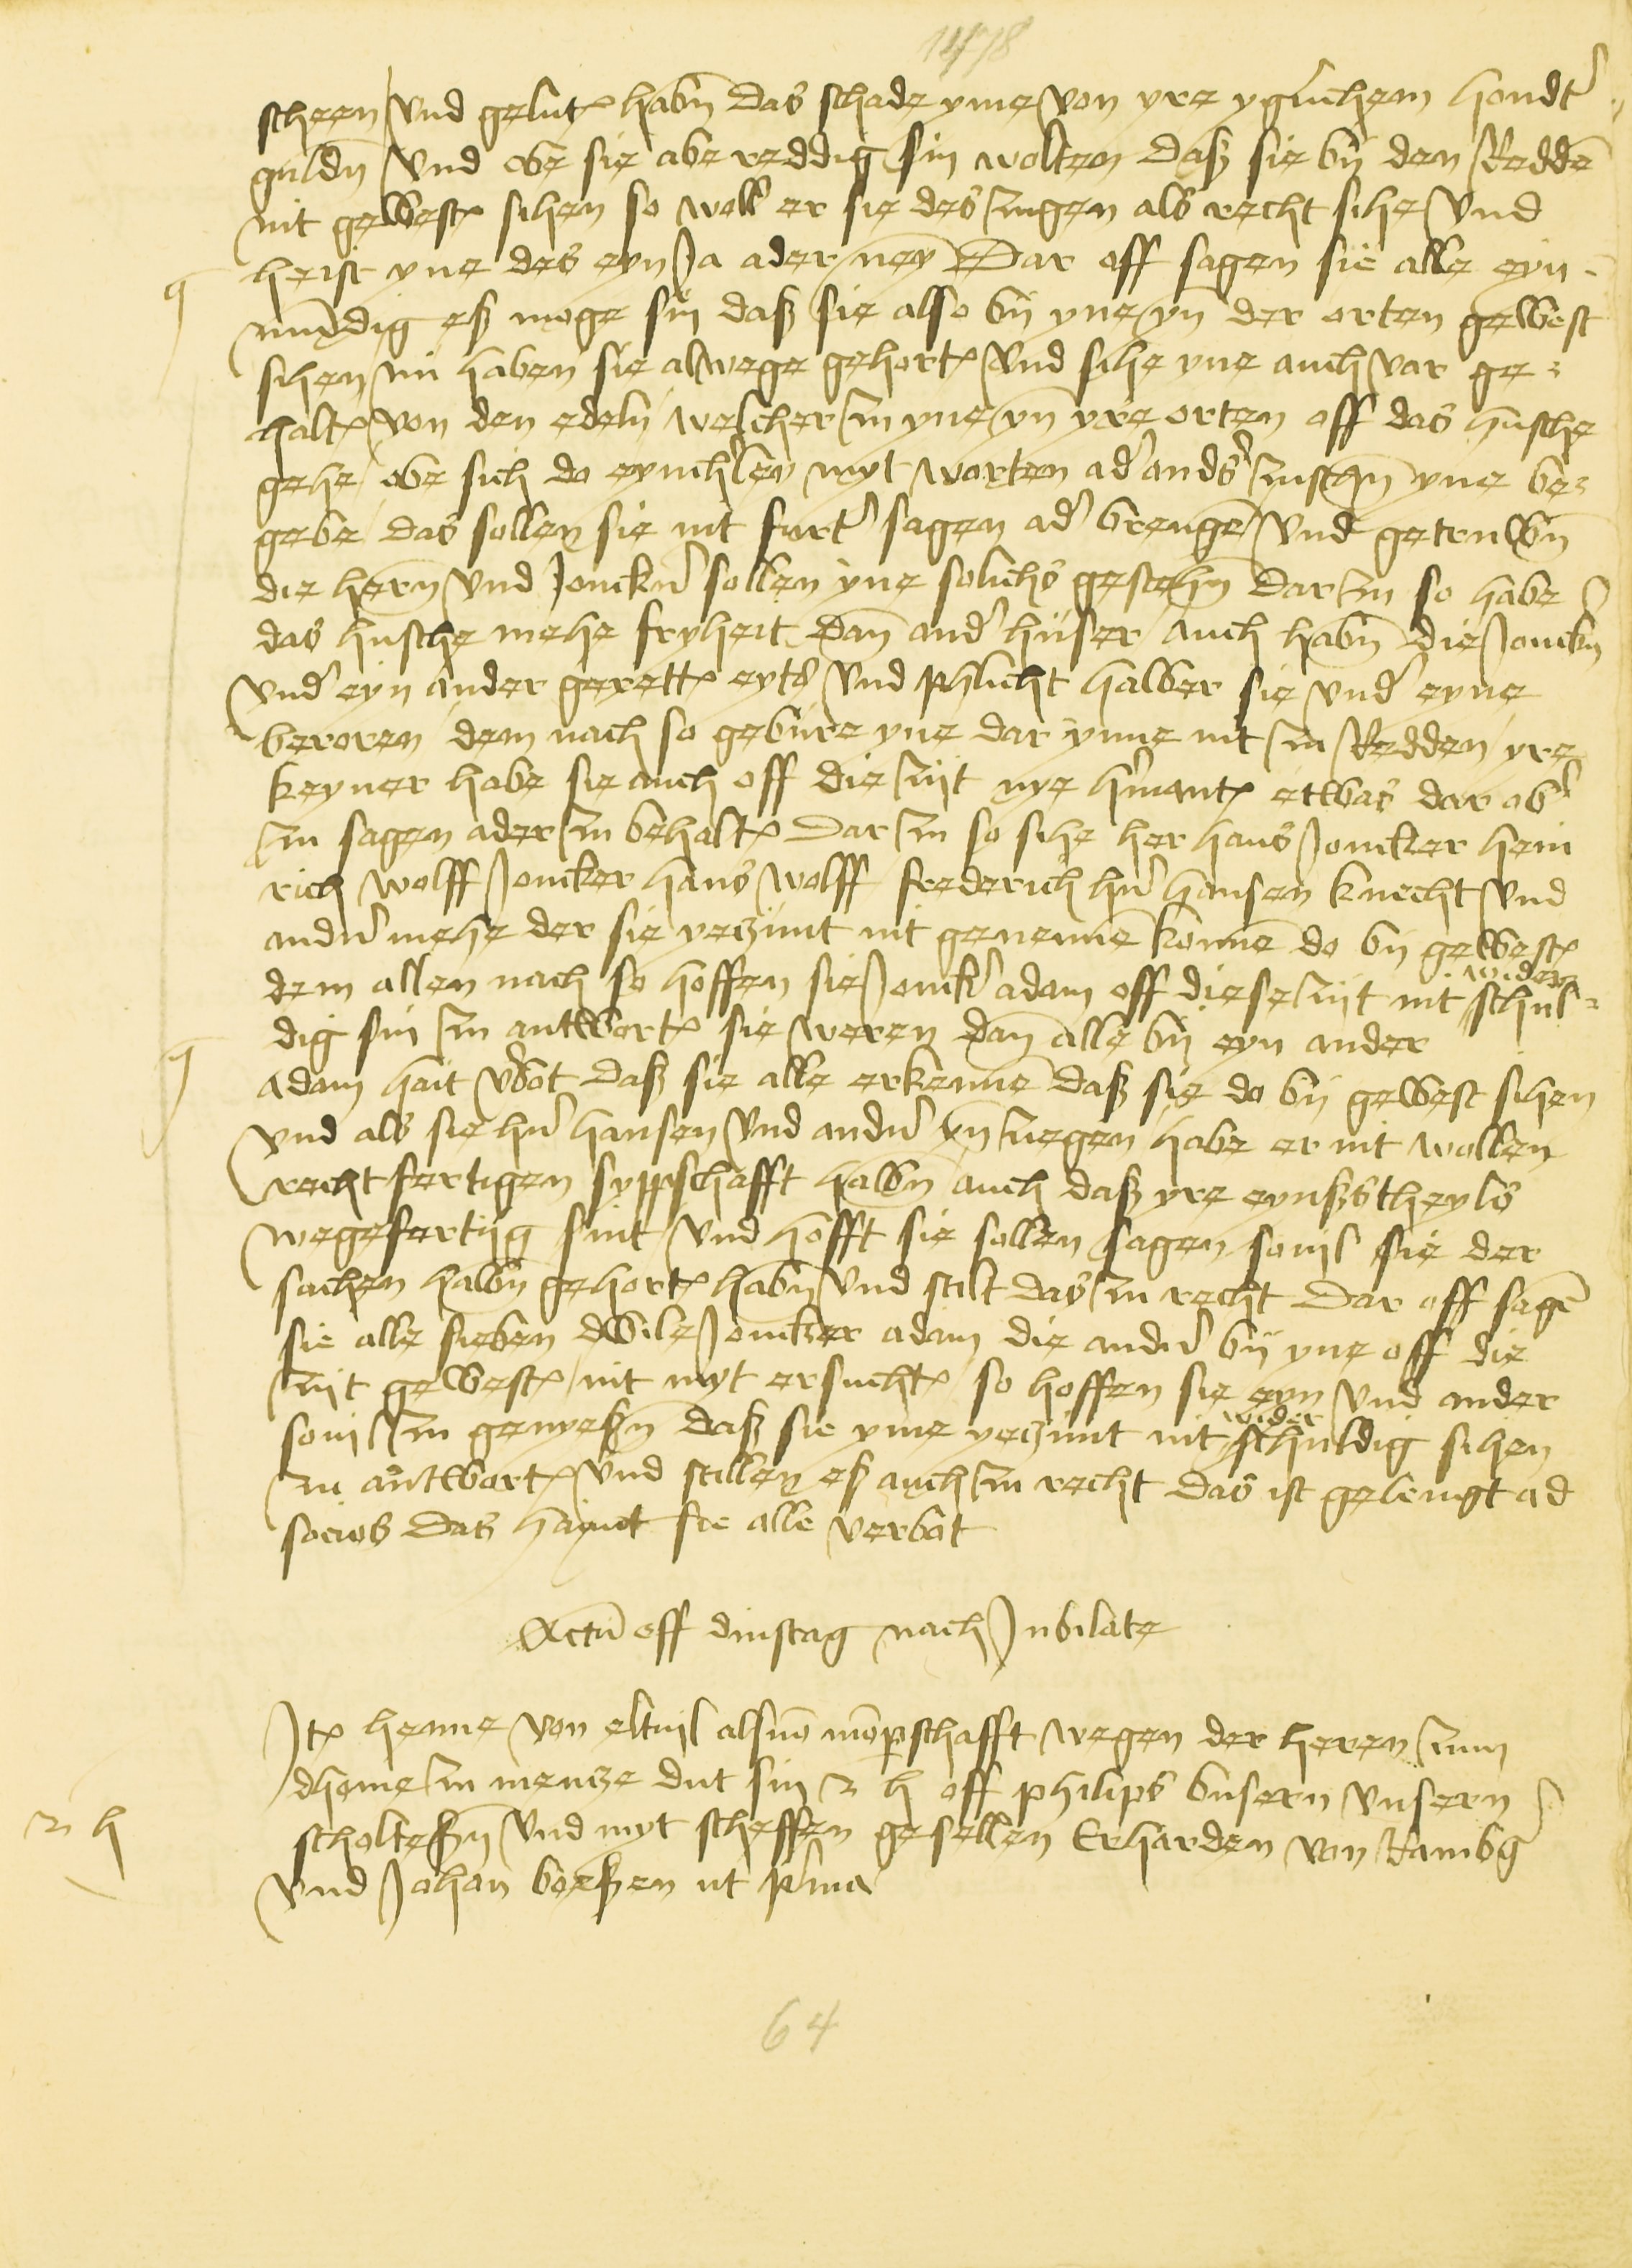 1478
scheen und gelut habn das schade yme von yre yglichem hondt
guldn und obe sie abereddig sin wolten daß sie by den Redde
nit gewest sihen so woll er sie des zugen als recht sihe und
heist yne des eyn Ja ader ney Dar off sagen sie alle eyn-
mudig eß moge sin daß sie also by yne yn der orten gewest
sihen nu haben sie alwege gehort und sihe yne auch var ge-
halt von den edeln welcher zu yne yn yre orten off das husche
gehe obe sich do eynich ley myt worten ad ands zuschn yne be-
gebe das sollen sie nit furt sagen ad brenge und getruwn
die hern und Jonckn sollen yne solichs gestehn Dar zu so habe
das husche mehe fryheit dan and huser auch habn die Jonckn
und eyn ander gerett eyts und phlicht halber sie und eyne
beroren dem nach so gebure yne dar ynne nit zu Redden yre
keyner habe sie auch off die zijt nye hmant etwas dar ob
zu sagen ader zu behalt Dar zu so sihe her hans Joncker hein
rich wolff Joncker hans wolff frederich hn hansen knecht und
andn mehe der sie yeczunt nit genenne konne do by gewest
dem allen nach so hoffen sie Jonck adam off diese zijt nit wider schul-
dig sin zu antwort sie weren dan alle by eyn ander
Adam hait vbot daß sie alle erkenne daß sie do by gewest sihen
und als sie hn hansen und andn yn zcegen habe er nit wollen
rechtfertigen sypschafft halbn auch daß yre eynßtheyls
wegefertig sint und hofft sie sollen sagen souil sie der
sachen halbn gehort habn und stilt das zu recht Dar off sage
sie alle sieben dwile Joncker adam die andn by yne off die
zijt gewest nit myt ersucht so hoffen sie eyn und ander
souil zu genyeßn daß sie yme yeczunt nit wider schuldig sihen
zu antwort und stillen eß auch zu recht das ist gelengt ad
socios Das haint sie alle verbot
Actu off dinstag nach Jubilate
It henne von eltuil als mopschafft wegen der heren zum
dhome zu mencze dut sin 2 h off philips busern unsern
scholteßn und myt scheffen gesellen Erharden von Rambg
und Johan boeßen ut pma
2 h
64